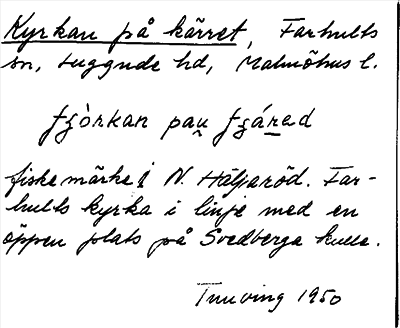 Kyrkan på kärret, Farhults
sn, Luggude hd, Malmöhus l.
fiskemärke i N. Häljaröd. Far-
hults kyrka i linje med en
öppen plats på Svedberga kulle.
1950